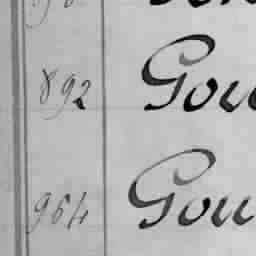 892 Gou
964 Gou